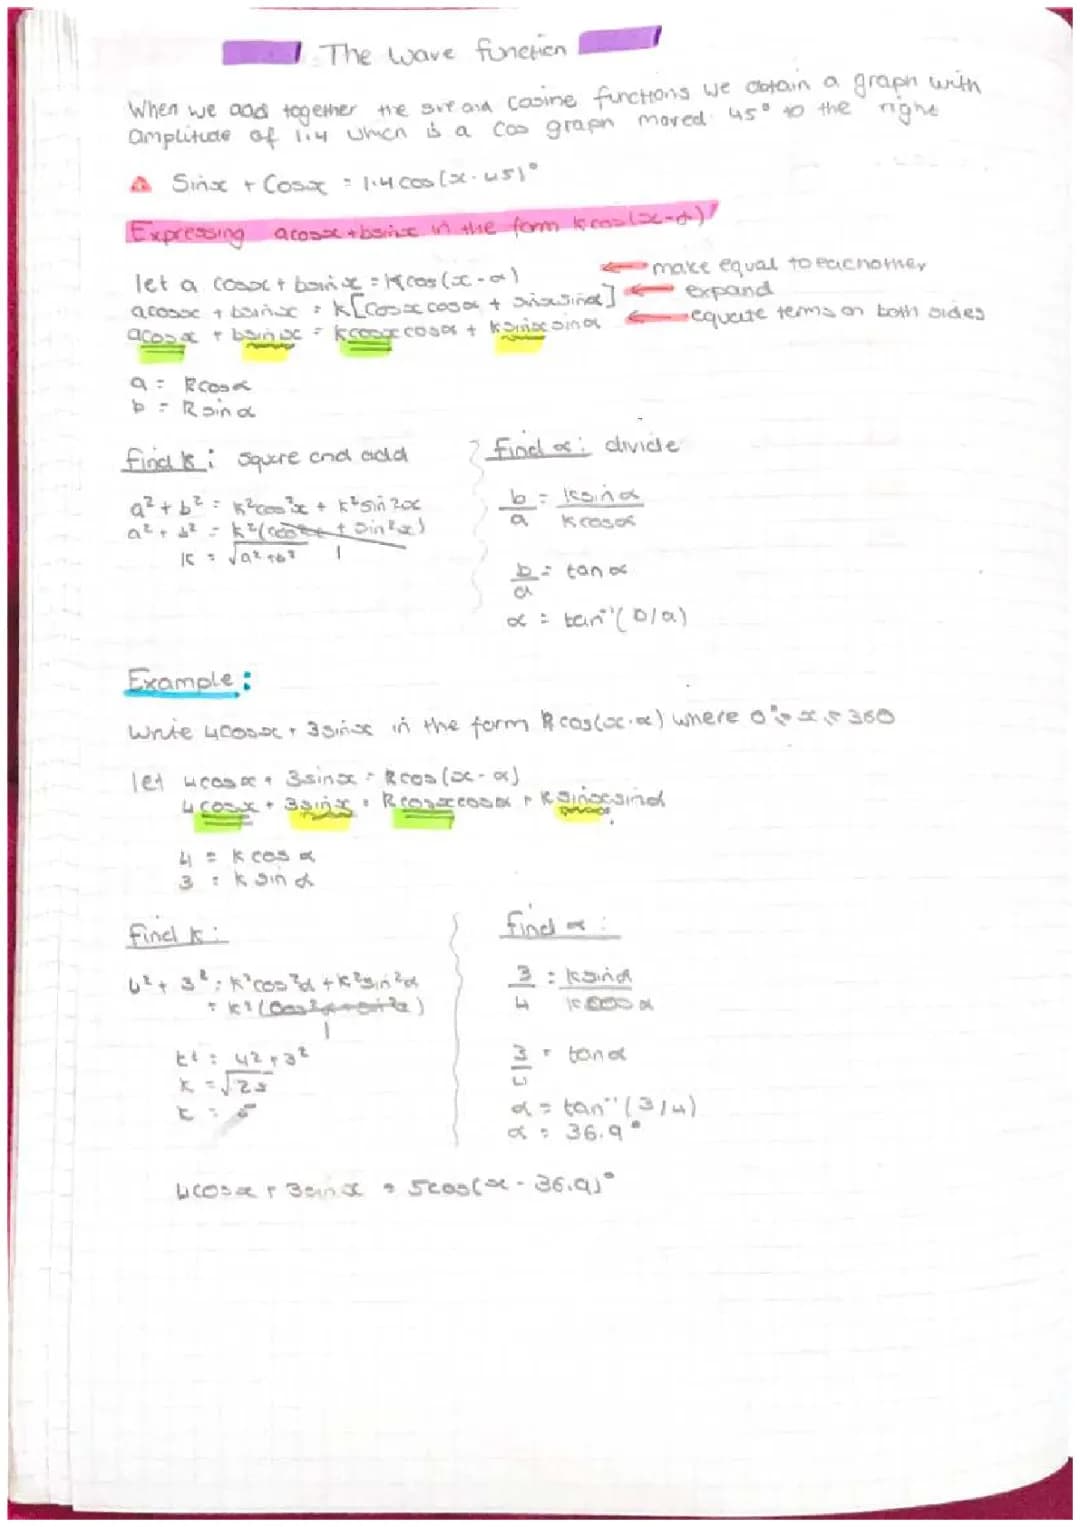 The wave function
When we add together the sine and cosine functions we obtain a graph with
amplitude of 1.4 which is a cos graph moved 45° to the right
Sinx + Cosx = 1.4 cos(x-45)°
Expressing acosx+bsinx in the form kcos(x-α)
let a cosx + bsinx = kcos(x-α)
make equal to eachother
acosx + bsinx = k[cosxcosα + sinxsinα]
expand
acosx + bsinx = kcosxcosα + ksinxsinα
equate terms on both sides
a = kcosα
b = ksinα
find k: square and add
a² + b² = k²cos²x + k²sin²x
a² + b² = k²(cos²x + sin²x)
1
k = √a²+b²
find α: divide
b/a = ksinα/kcosα
b/a = tanα
α = tan⁻¹(b/a)
Example:
Write 4cosx + 3sinx in the form kcos(x-α) where 0° ≤ x ≤ 360
let 4cosx + 3sinx = kcos(x-α)
4cosx + 3sinx = kcosxcosα + ksinxsinα
4 = kcosα
3 = ksinα
find k:
4² + 3² = k²cos²α + k²sin²α
= k²(cos²α+sin²α)
1
k² = 4²+3²
k = √25
k = 5
find α:
3/4 = ksinα/kcosα
3/4 = tanα
α = tan⁻¹(3/4)
α = 36.9°
4cosx + 3sinx = 5cos(x-36.9)°